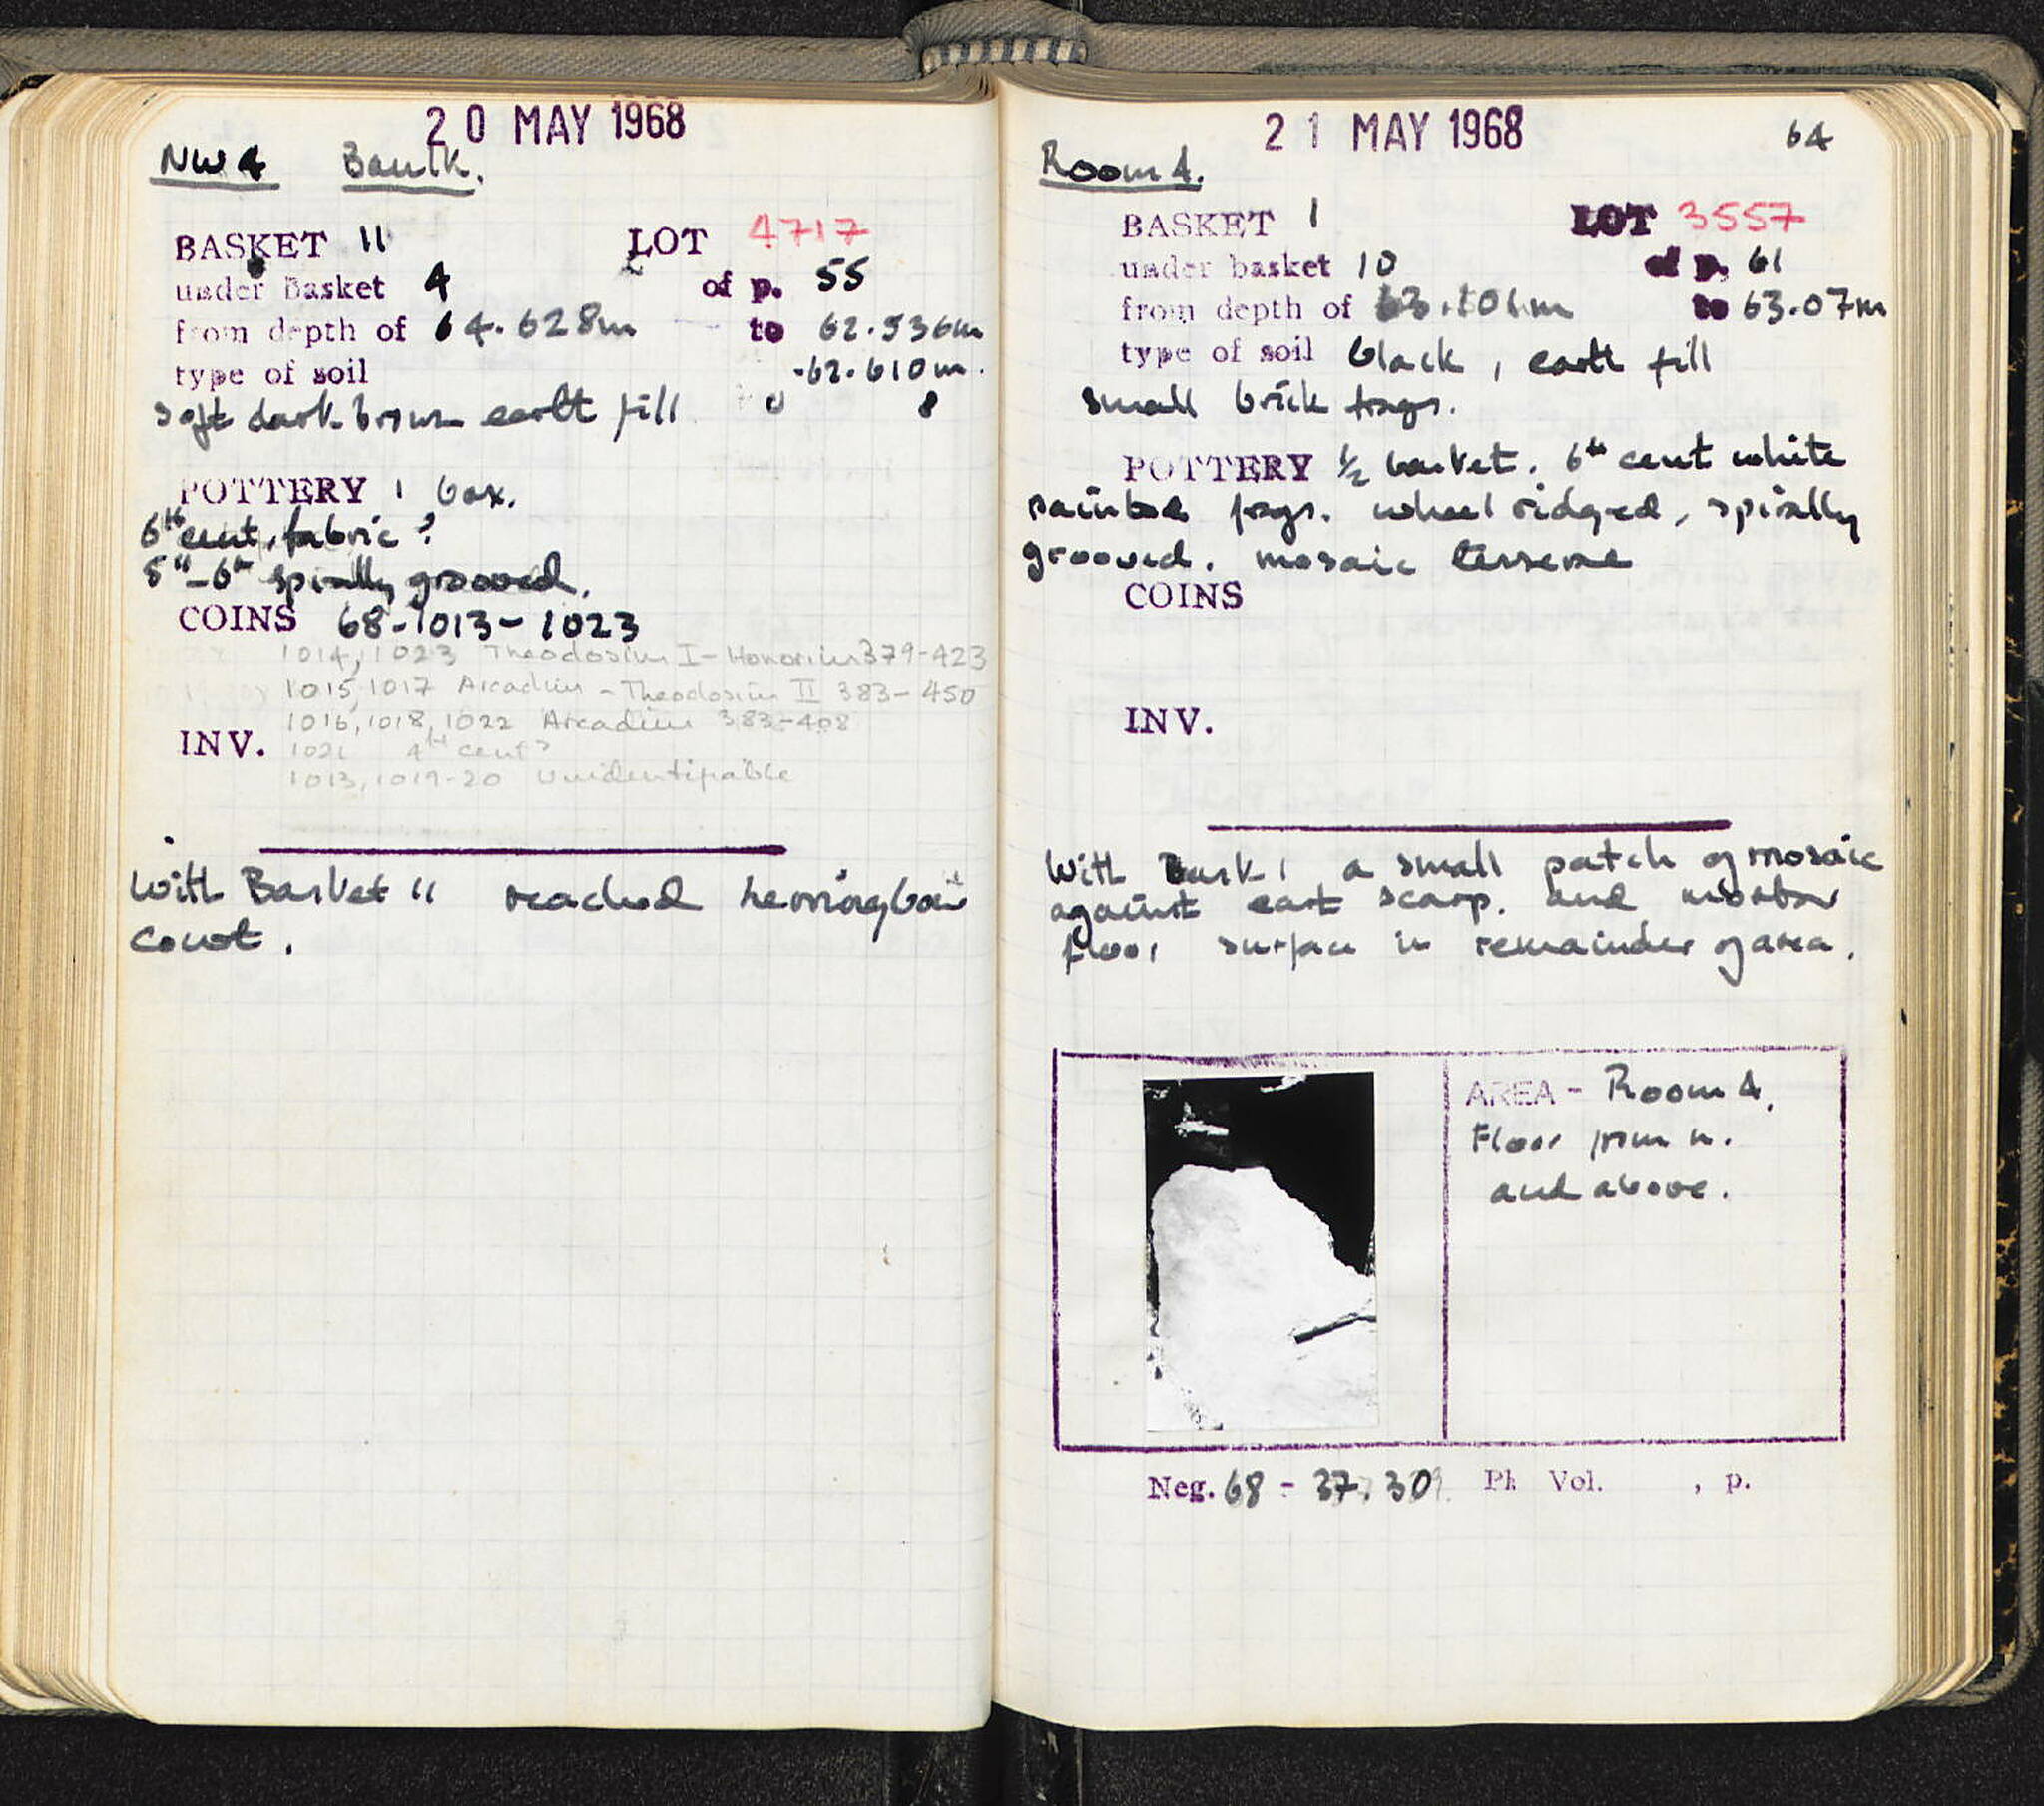 20 MAY 1968
NW 4 Baulk.
BASKET 11 LOT 4717
under Basket 4 of p. 55
from depth of 64.628m to 62.536m
type of soil -62.610m.
soft dark brown earth fill
POTTERY 1 box.
6th cent. fabric?
5th-6th spirally grooved.
COINS 68-1013-1023
1014, 1023 Theodosius I-Honorius 379-423
1015, 1017 Arcadius - Theodosius II 383-450
1016, 1018, 1022 Arcadius 383-408
INV. 1021 4th cent?
1013, 1019-20 Unidentifiable
With Basket 11 reached herringbone
court.
21 MAY 1968 64
Room 4.
BASKET 1 LOT 3557
under basket 10 of p. 61
from depth of to 63.07m
type of soil black, earth fill
small brick frags.
POTTERY ½ basket. 6th cent white
painted frags. wheel ridged, spirally
grooved. mosaic tesserae
COINS
INV.
With Bask 1 a small patch of mosaic
against east scarp. and mortar
floor surface in remainder of area.
AREA - Room 4.
Floor from n.
and above.
Neg. 68 - 37. 30 Ph Vol. , p.